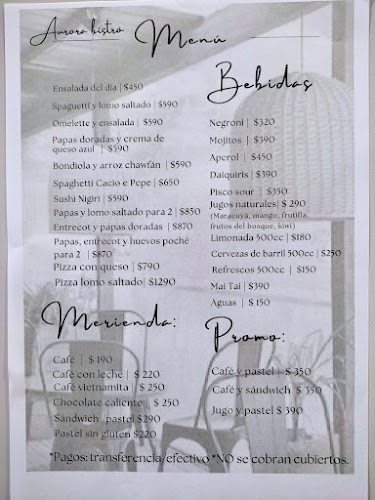 Aurora bistro
Menú
Ensalada del día | $450
Spaguetti y lomo saltado | $590
Omelette y ensalada | $590
Papas doradas y crema de
queso azul | $590
Bondiola y arroz chawfán | $590
Spaghetti Cacio e Pepe | $650
Sushi Nigiri | $590
Papas y lomo saltado para 2 | $850
Entrecot y papas doradas | $870
Papas, entrecot y huevos poché
para 2 | $870
Pizza con queso | $790
Pizza lomo saltado| $1290
Bebidas
Negroni | $320
Mojitos | $390
Aperol | $450
Daiquiris | $390
Pisco sour | $350
Jugos naturales| $ 290
(Maracuyá, mango, frutilla,
frutos del bosque, kiwi)
Limonada 500cc | $180
Cervezas de barril 500cc | $250
Refrescos 500cc | $150
Mai Tai | $390
Aguas | $ 150
Merienda:
Café | $ 190
Café con leche | $ 220
Café vietnamita | $ 250
Chocolate caliente | $ 250
Sándwich / pastel $290
Pastel sin gluten $220
Promo:
Café y pastel | $ 350
Café y sándwich $ 350
Jugo y pastel $ 390
*Pagos: transferencia/efectivo *NO se cobran cubiertos.